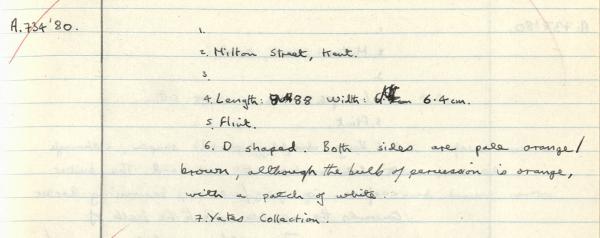 A.734'80.
1.
2. Milton Street, Kent.
3.
4. Length: 88 Width: 6.4cm.
5. Flint.
6. D shaped. Both sides are pale orange/
brown, although the bulb of percussion is orange,
with a patch of white.
7. Yates Collection.